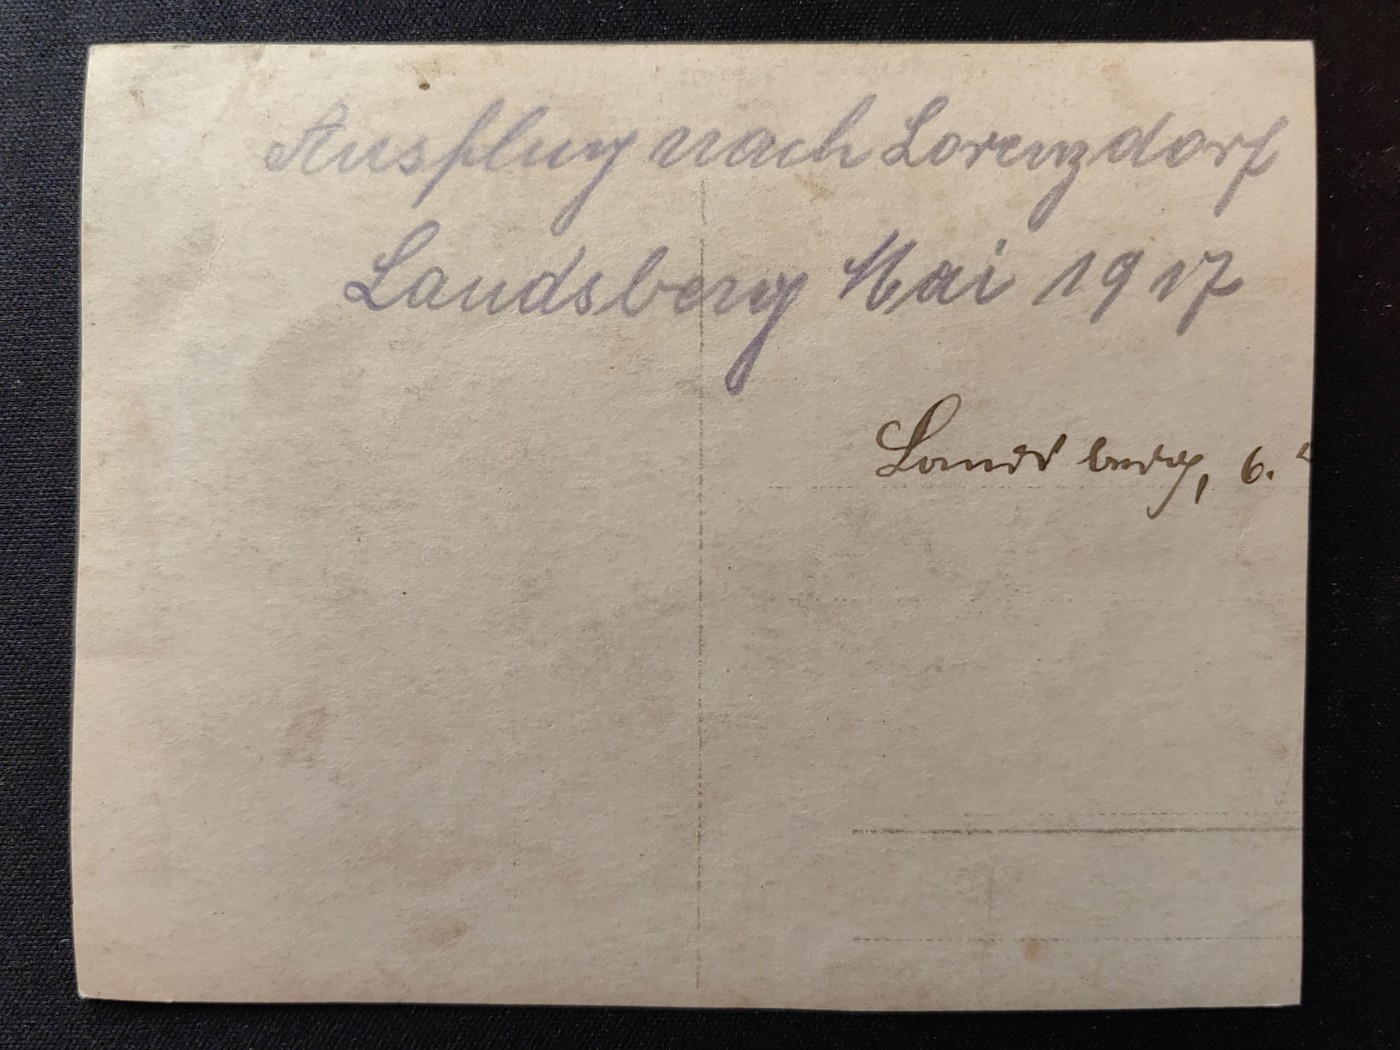 Ausflug nach Lorenzdorf
Landsberg Mai 1917
Landsberg, 6.